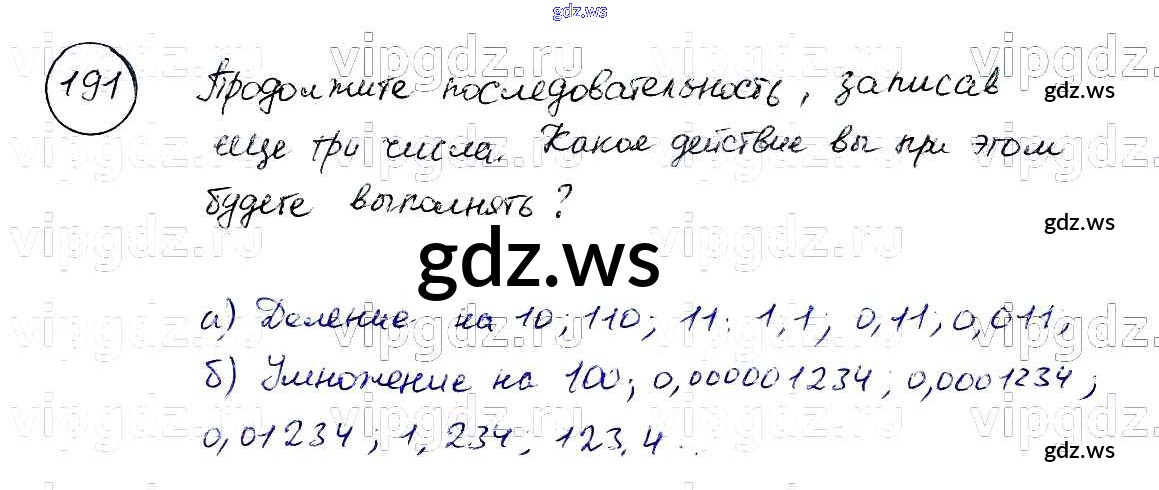 gdz.ws
191
Продолжите последовательность, записав
gdz.ws
еще три числа. Какое действие вы при этом
будете выполнять?
gdz.ws
gdz.ws
а) Деление на 10; 110; 11; 1,1; 0,11; 0,011,
gdz.ws
б) Умножение на 100; 0,000001234; 0,0001234;
0,01234; 1,234; 123,4.
gdz.ws